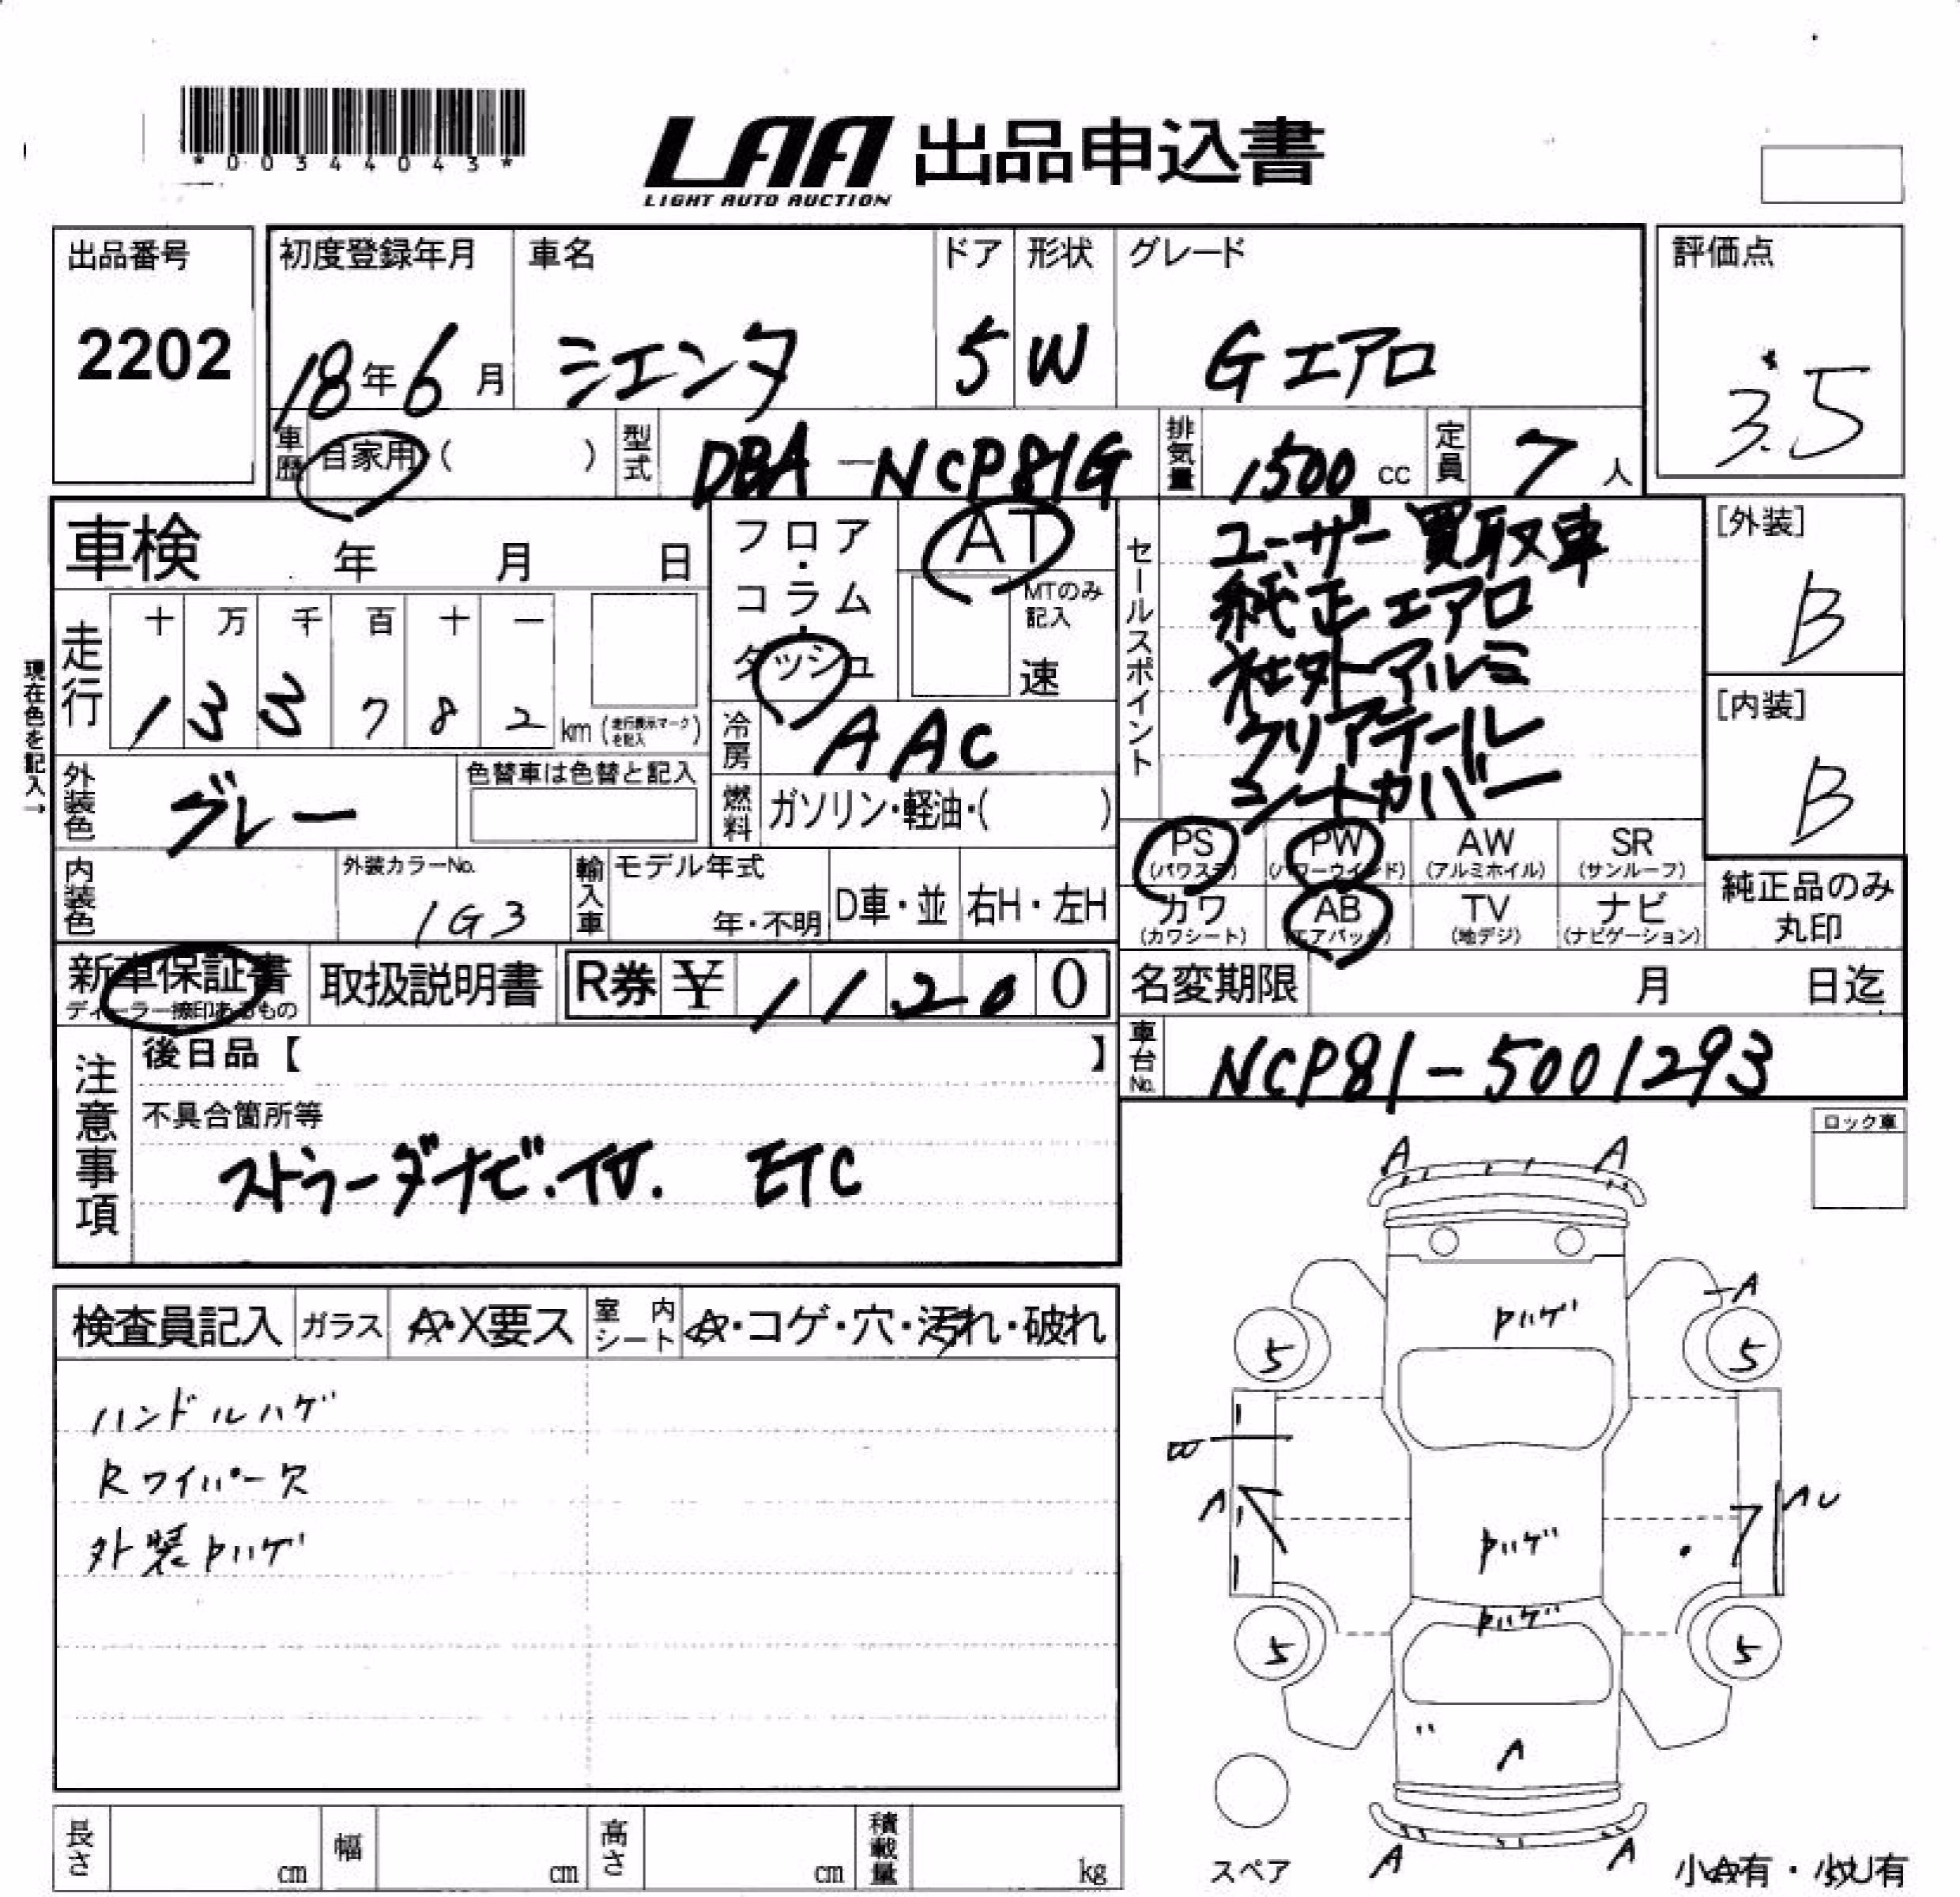 *00344043*
LAA 出品申込書
LIGHT AUTO AUCTION
出品番号
2202
初度登録年月
18年6月
車名
シエンタ
ドア
5
形状
W
グレード
Gエアロ
評価点
3.5
車歴
自家用 ( )
型式
DBA-NCP81G
排気量
1500 cc
定員
7人
車検 年 月 日
フロア・コラム・ダッシュ
AT
MTのみ記入
速
セールスポイント
ユーザー買取車
純正エアロ
社外アルミ
クリアテール
シートカバー
[外装]
B
[内装]
B
現在色を記入→
走行
十 万 千 百 十 一
1 3 3 7 8 2 km (走行表示マークを記入)
冷房
AAC
外装色
グレー
色替車は色替と記入
燃料
ガソリン・軽油・( )
PS (パワステ)
PW (パワーウインド)
AW (アルミホイル)
SR (サンルーフ)
カワ (カワシート)
AB (エアバック)
TV (地デジ)
ナビ (ナビゲーション)
純正品のみ
丸印
内装色
外装カラーNo.
1G3
輸入車
モデル年式
年・不明
D車・並
右H・左H
新車保証書
ディーラー捺印あるもの
取扱説明書
R券 ¥ 11200
名変期限 月 日迄
車台No.
NCP81-5001293
注意事項
後日品【 】
不具合箇所等
ストラーダナビ.付. ETC
ロック車
検査員記入
ガラス
A・X要ス
室内シート
A・コゲ・穴・汚れ・破れ
ハンドルハゲ
Rワイパー欠
外装Pハゲ
A A
A
Pハゲ
5 5
A
A U
Pハゲ
Pハゲ
5 5
A
A A
スペア
小A有・小U有
長さ cm
幅 cm
高さ cm
積載量 kg